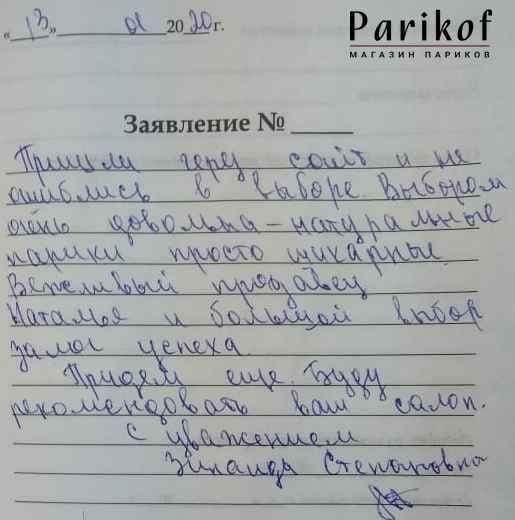 Parikof
МАГАЗИН ПАРИКОВ
«13» 01 2020г.
Заявление №
Пришли через сайт и не
ошиблись в выборе. Выбором
очень довольна – натуральные
парики просто шикарные.
Вежливый продавец
Наталья и большой выбор
залог успеха.
Придем еще. Буду
рекомендовать ваш салон.
С уважением
Зинаида Степановна